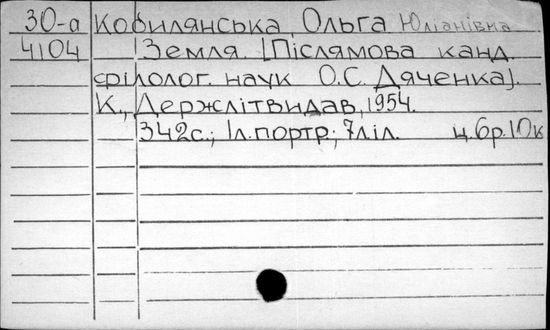 30-а Кобилянська Ольга Юліанівна
4104 Земля. [Післямова канд.
філолог. наук О.С. Дяченка].
К., Держлітвидав, 1954.
342с.; 1л.портр.; 7л іл. ц. 6р. 10к